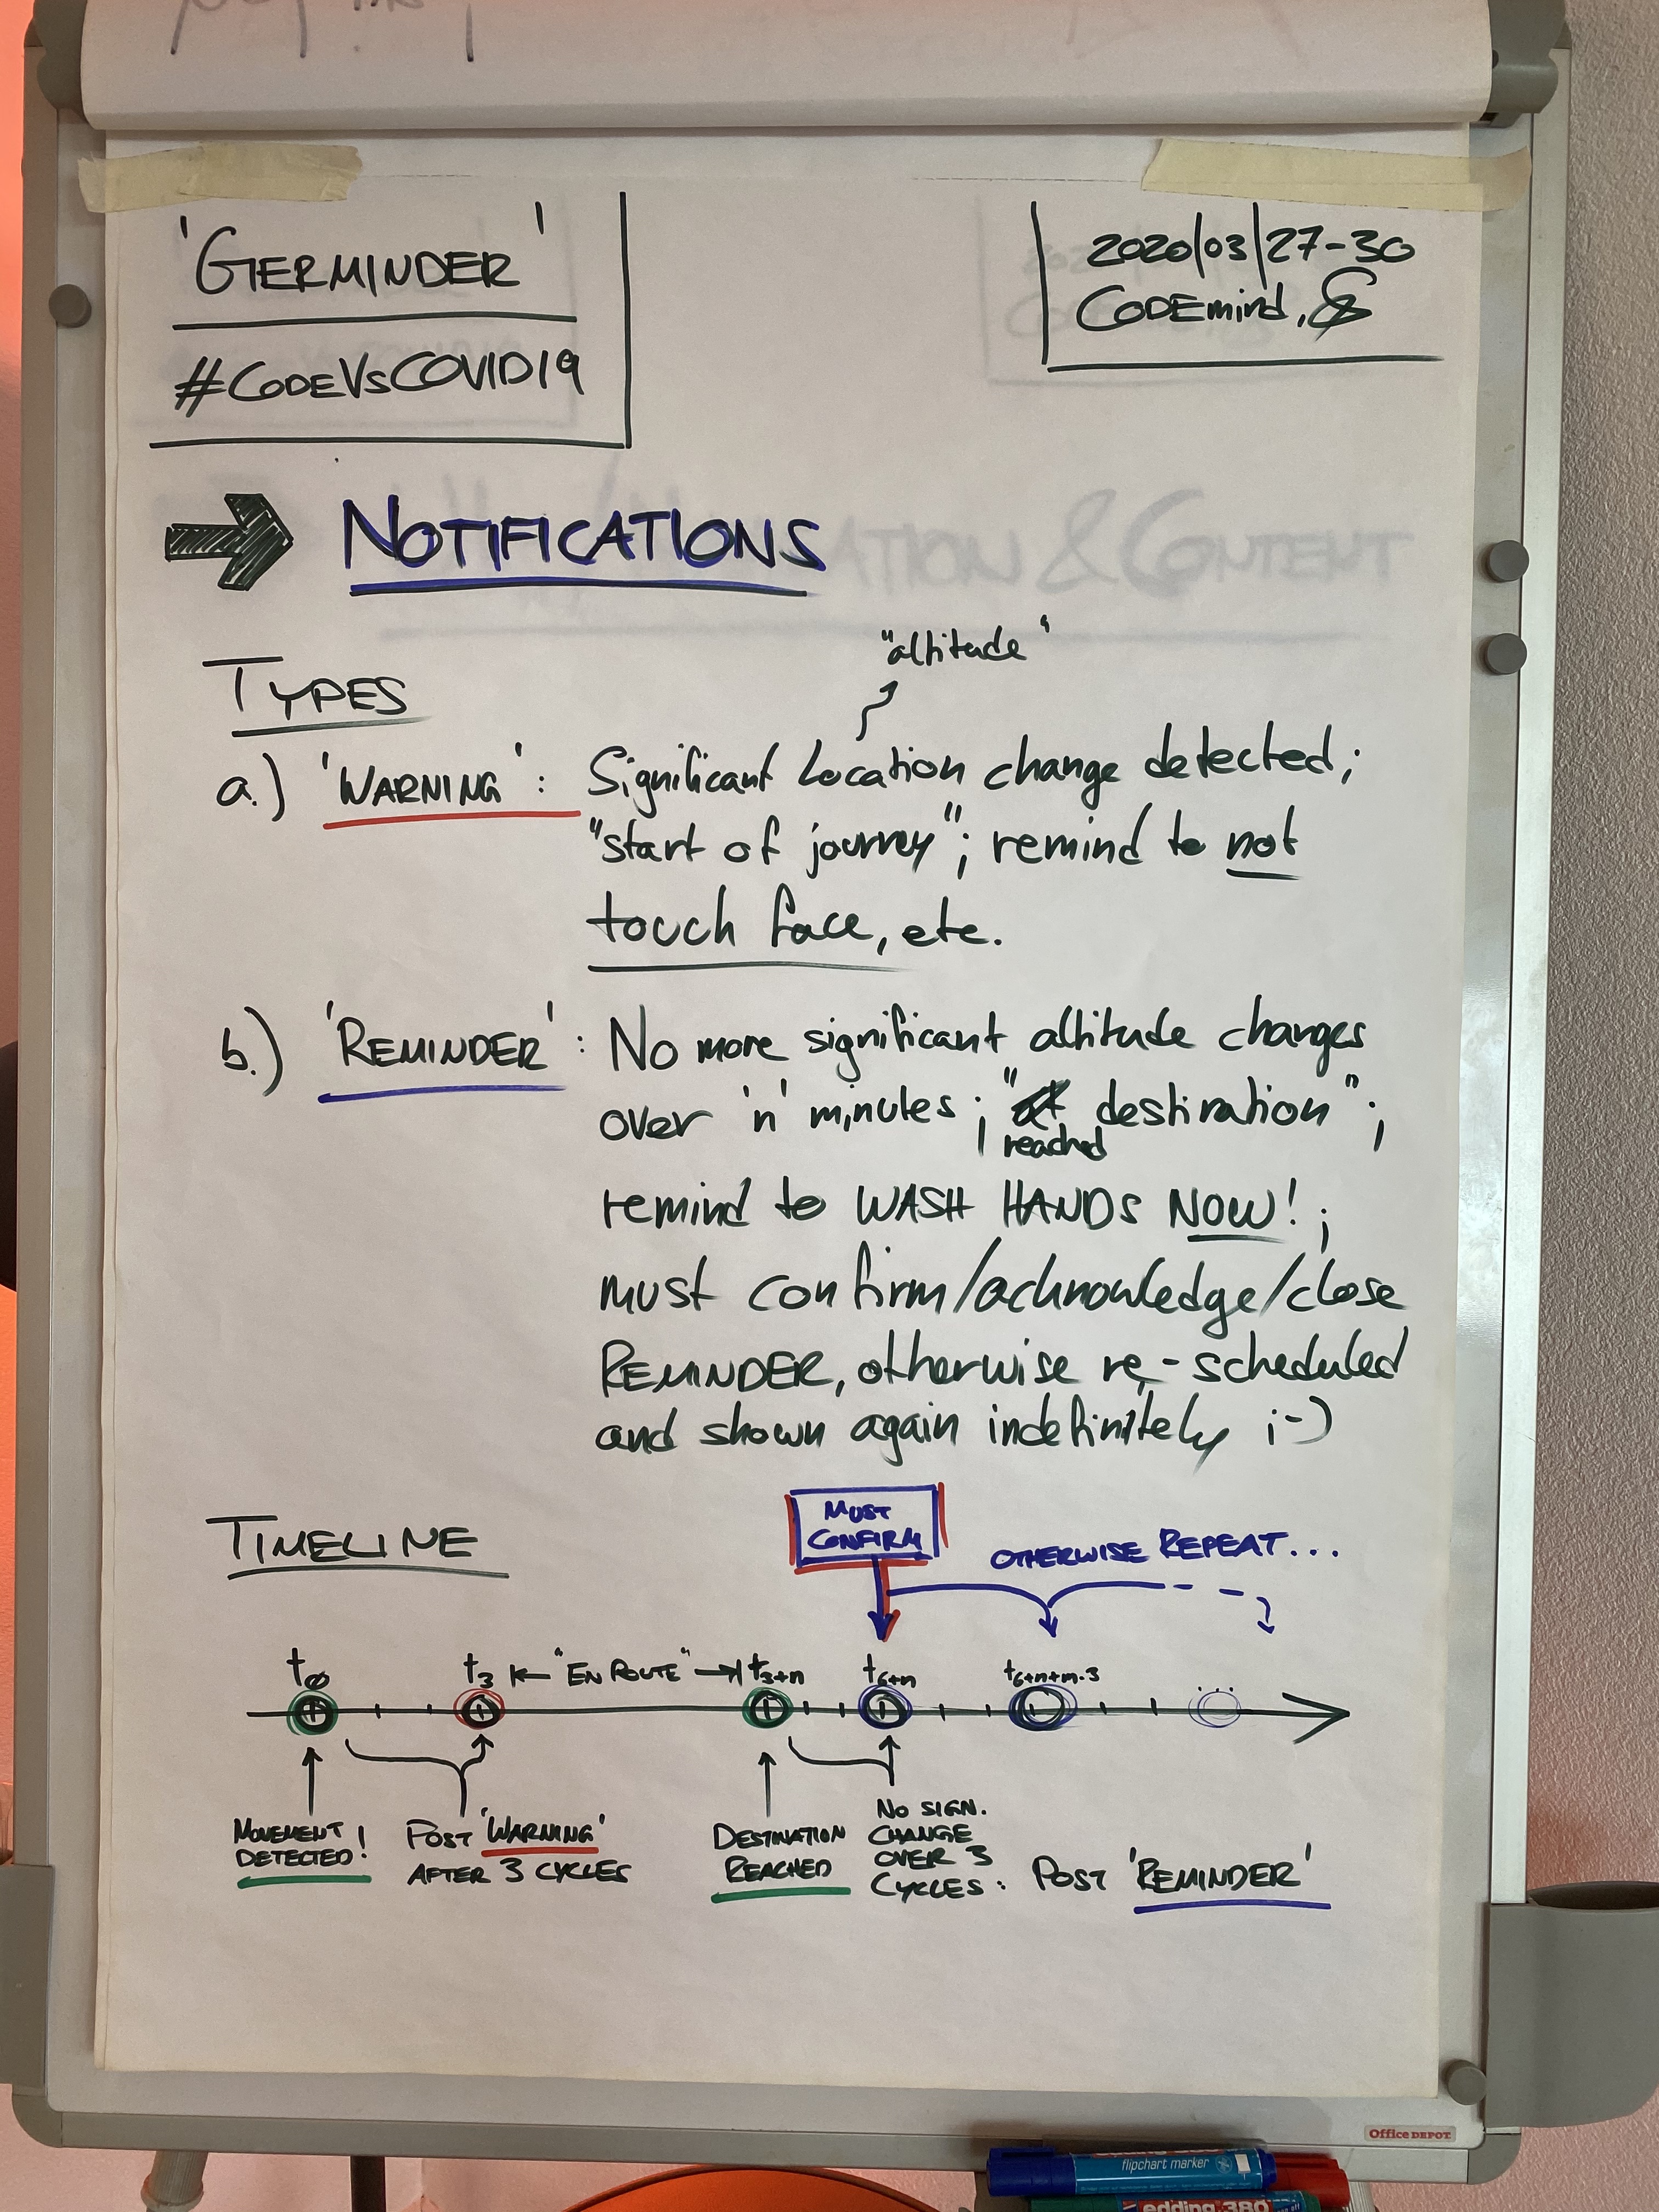 'GERMINDER'
#CODEVSCOVID19
2020/03/27-30
CODEmind,
NOTIFICATIONS
ATION & CONTENT
TYPES
"altitude"
a.) 'WARNING': Significant Location change detected;
"start of journey"; remind to not
touch face, etc.
b.) 'REMINDER': No more significant altitude changes
over 'n' minutes; "at destination";
reached
remind to WASH HANDS NOW!;
must confirm/acknowledge/close
REMINDER, otherwise re-scheduled
and shown again indefinitely ;-)
TIMELINE
MUST
CONFIRM
OTHERWISE REPEAT...
t0 t3 "EN ROUTE" t3+n t6+n t6+n+m·3 ...
MOVEMENT
DETECTED!
POST 'WARNING'
AFTER 3 CYCLES
DESTINATION
REACHED
NO SIGN.
CHANGE
OVER 3
CYCLES: POST 'REMINDER'
Office DEPOT
flipchart marker
edding 380